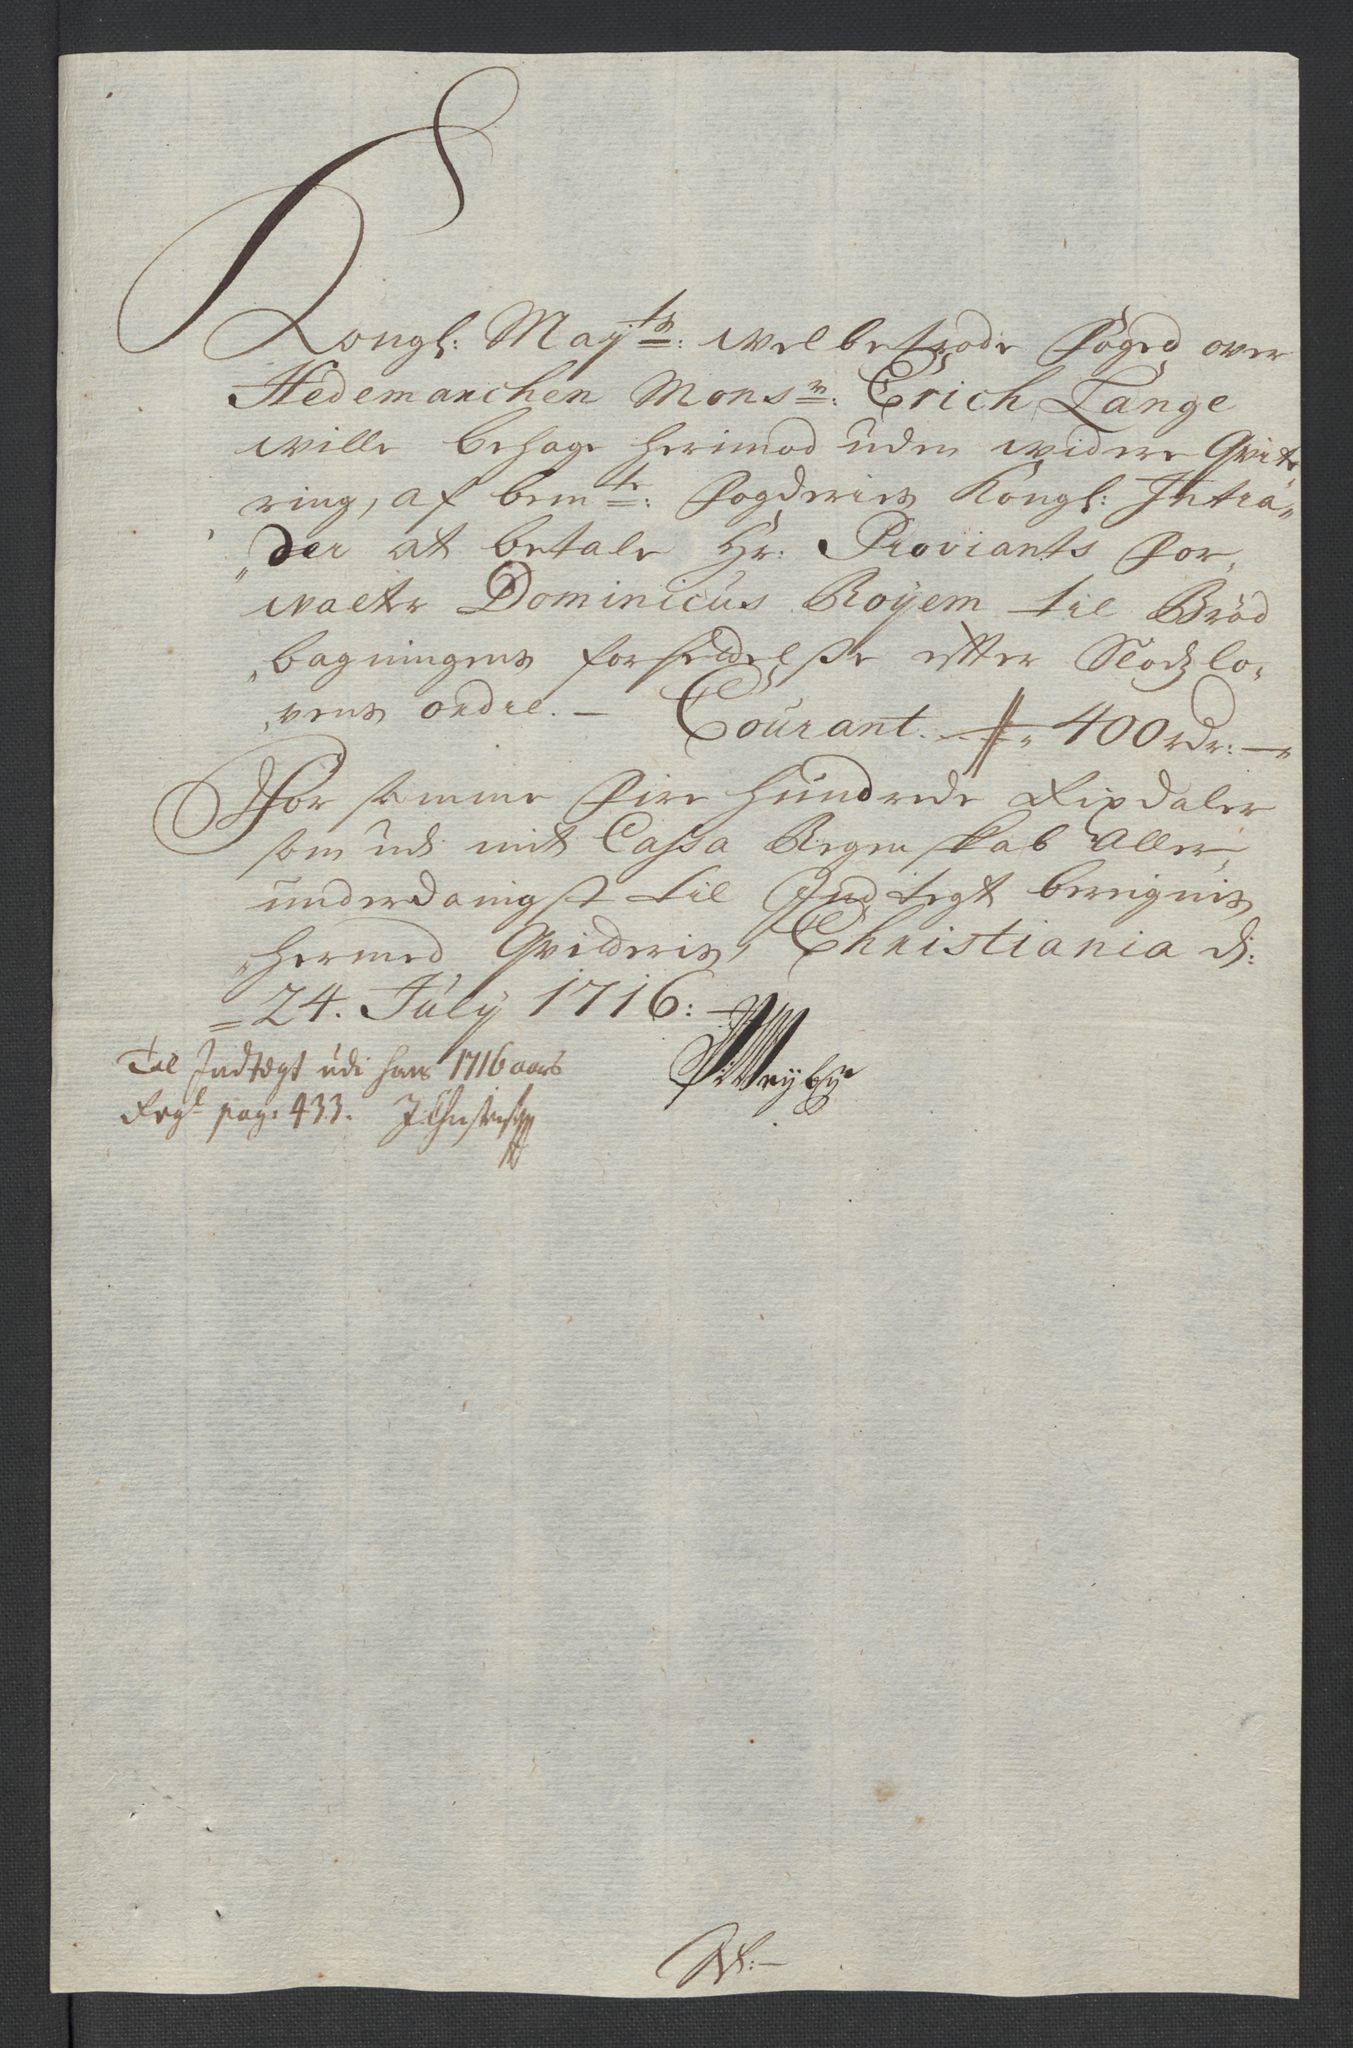 Kongl: Maÿ:ts: welbetrode Foged over
Hedemarchen Monsr: Erich Lange
wille behage herimod uden widere Qvite
ring, af bemte: Fogderies Kongl: Intra„
„der at betale Hr: Proviants For„
walter Dominicus Royem til Brød
„bagningens forsettelsse efter Slotzlo„
„vens ordre. — Courant. 400 rdr: —
For samme Fire Hundrede Rixdaler
som udi mit Cassa Regenskab Aller„
underdanigst til Indtegt beregnis
„hermed Qvitteris, Christiania d:
24. Julÿ 1716: —
Til Indtægt udi hans 1716 aars
Regl pag: 433.